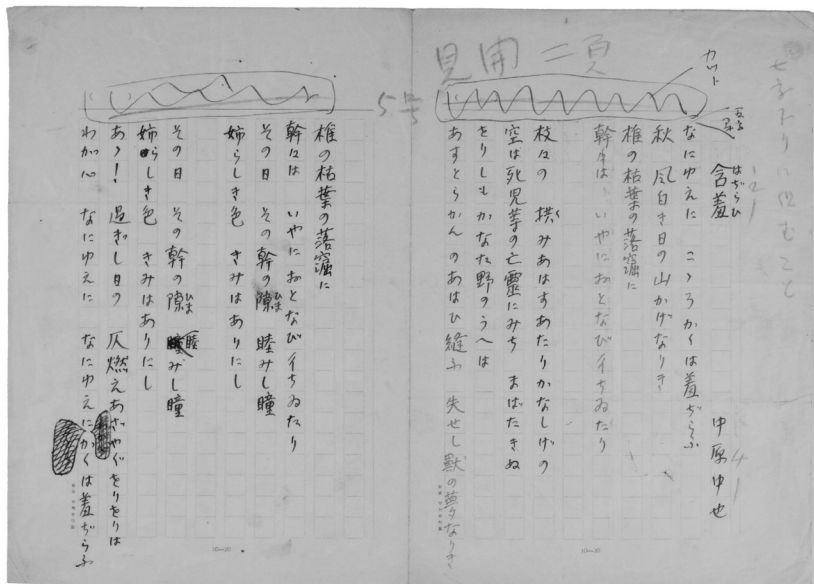 七字下りに組むこと
見開二頁
カット
5号
含羞
はぢらひ
中原中也
なにゆえに こゝろかくは羞ぢらふ
秋 風白き日の山かげなりき
椎の枯葉の落窪に
幹々は いやにおとなび彳ちゐたり
枝々の 拱みあはすあたりかなしげの
空は死児等の亡靈にみち まばたきぬ
をりしもかなた野のうへは
あすとらかんのあはひ縫ふ 失せし獸の夢なりき
椎の枯葉の落窪に
幹々は いやにおとなび彳ちゐたり
その日 その幹の隙 睦みし瞳
ひま
姉らしき色 きみはありにし
その日 その幹の隙 睦みし瞳
ひま
姉らしき色 きみはありにし
あゝ! 過ぎし日の 仄燃えあざやぐをりをりは
わが心 なにゆえに なにゆえにかくは羞ぢらふ
10—20
10—20